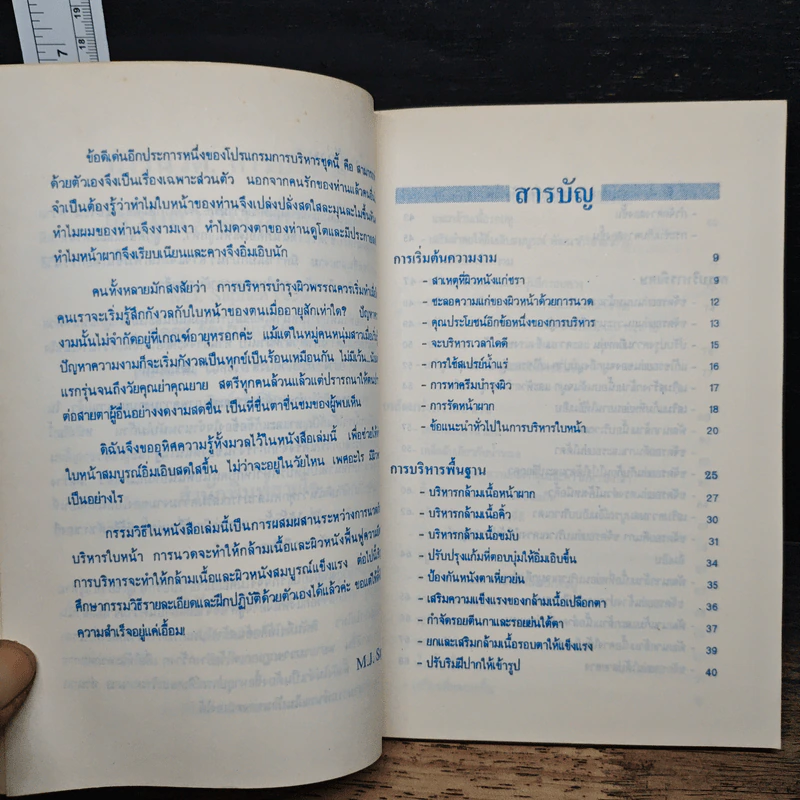 ข้อดีเด่นอีกประการหนึ่งของโปรแกรมการบริหารชุดนี้ คือ
ด้วยตัวเองจึงเป็นเรื่องเฉพาะส่วนตัว นอกจากคนรักของท่านแล้ว
จำเป็นต้องรู้ว่าทำไมใบหน้าของท่านจึงเปล่งปลั่งสดใสละมุนละไม
ทำไมผมของท่านจึงงามเงา ทำไมดวงตาของท่านดูโตและมีประกาย
ทำไมหน้าผากจึงเรียบเนียนและคางจึงอิ่มเอิบนัก
คนทั้งหลายมักสงสัยว่า การบริหารบำรุงผิวพรรณควรเริ่ม
คนเราจะเริ่มรู้สึกกังวลกับใบหน้าของตนเมื่ออายุสักเท่าใด?
งามนั้นไม่จำกัดอยู่ที่เกณฑ์อายุหรอกค่ะ แม้แต่ในหมู่คนหนุ่มสาว
ปัญหาความงามก็จะเริ่มกังวลเป็นทุกข์เป็นร้อนเหมือนกัน ไม่มีเว้น
แรกรุ่นจนถึงวัยคุณย่าคุณยาย สตรีทุกคนล้วนแล้วแต่ปรารถนาให้
ต่อสายตาผู้อื่นอย่างงดงามสดชื่น เป็นที่ชื่นตาชื่นชมของผู้พบเห็น
ดิฉันจึงขออุทิศความรู้ทั้งมวลไว้ในหนังสือเล่มนี้
ใบหน้าสมบูรณ์อิ่มเอิบสดใสขึ้น ไม่ว่าจะอยู่ในวัยไหน เพศอะไร
เป็นอย่างไร
กรรมวิธีในหนังสือเล่มนี้เป็นการผสมผสานระหว่างการนวด
บริหารใบหน้า การนวดจะทำให้กล้ามเนื้อและผิวหนังฟื้นฟู
การบริหารจะทำให้กล้ามเนื้อและผิวหนังสมบูรณ์แข็งแรง ต่อไปนี้
ศึกษากรรมวิธีรายละเอียดและฝึกปฏิบัติด้วยตัวเองได้แล้วค่ะ
ความสำเร็จอยู่แค่เอื้อม!
M.J.
สารบัญ
การเริ่มต้นความงาม 9
- สาเหตุที่ผิวหนังแก่ชรา 9
- ชะลอความแก่ของผิวหน้าด้วยการนวด 12
- คุณประโยชน์อีกข้อหนึ่งของการบริหาร 13
- จะบริหารเวลาใดดี 15
- การใช้สเปรย์น้ำแร่ 16
- การทาครีมบำรุงผิว 17
- การรัดหน้าผาก 18
- ข้อแนะนำทั่วไปในการบริหารใบหน้า 20
การบริหารพื้นฐาน 25
- บริหารกล้ามเนื้อหน้าผาก 27
- บริหารกล้ามเนื้อคิ้ว 30
- บริหารกล้ามเนื้อขมับ 31
- ปรับปรุงแก้มที่ตอบบุ๋มให้อิ่มเอิบขึ้น 34
- ป้องกันหนังตาเหี่ยวย่น 35
- เสริมความแข็งแรงของกล้ามเนื้อเปลือกตา 36
- กำจัดรอยตีนกาและรอยย่นใต้ตา 37
- ยกและเสริมกล้ามเนื้อรอบตาให้แข็งแรง 39
- ปรับริมฝีปากให้เข้ารูป 40